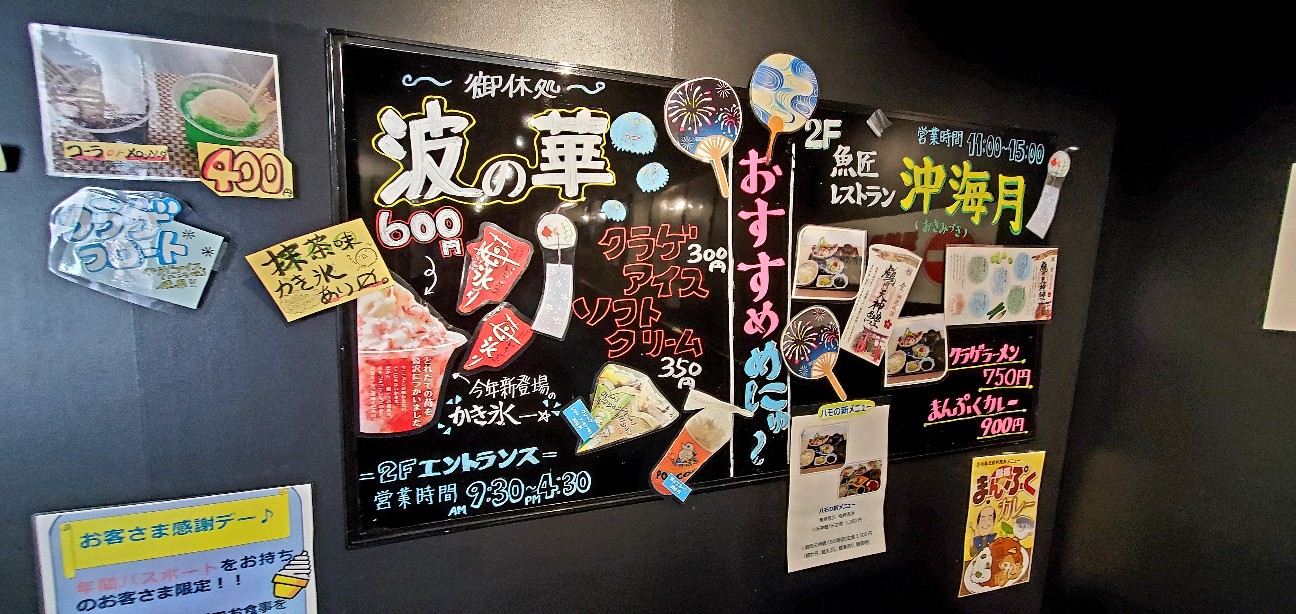 コーラorメロン
400円
クラゲ
フロート
抹茶味
かき氷
あります
御休処
波の華
600円
苺氷り
苺氷り
とれたての苺を
今年新登場の
かき氷
=2Fエントランス=
営業時間 AM 9:30~PM 4:30
クラゲ
アイス
300円
ソフト
クリーム
350円
おすすめ
めにゅ~
2F
魚匠
レストラン
沖海月
(おきみづき)
営業時間 11:00~15:00
クラゲラーメン
750円
まんぷくカレー
900円
ハモの新メニュー
ハモの新メニュー
まんぷく
カレー
お客さま感謝デー♪
年間パスポートをお持ち
のお客さま限定!!
お食事を